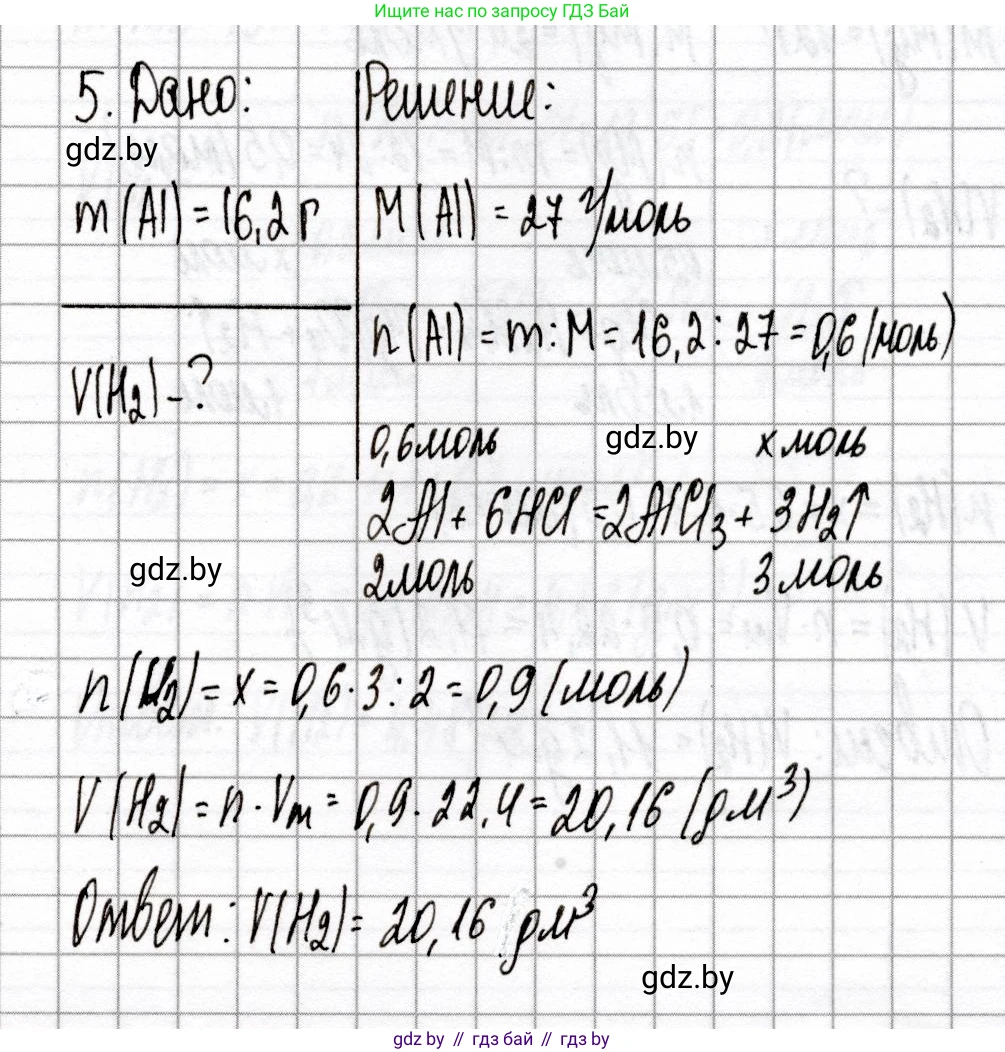 Ищите нас по запросу ГДЗ Бай
5. Дано:
Решение:
gdz.by
m(Al) = 16,2 г
M(Al) = 27 г/моль
n(Al) = m : M = 16,2 : 27 = 0,6 (моль)
V(H₂) - ?
0,6 моль
gdz.by
x моль
2Al + 6HCl = 2AlCl₃ + 3H₂↑
gdz.by
2 моль
3 моль
n(H₂) = x = 0,6 · 3 : 2 = 0,9 (моль)
V(H₂) = n · Vm = 0,9 · 22,4 = 20,16 (дм³)
Ответ: V(H₂) = 20,16 дм³
gdz.by
gdz.by // гдз бай // gdz.by